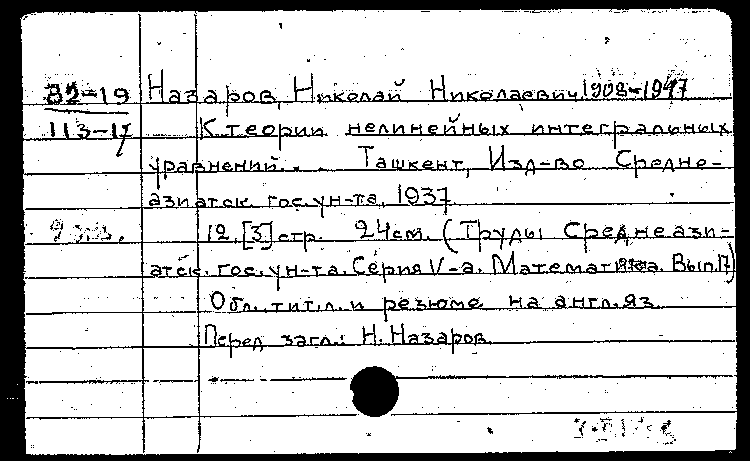 82-19 Назаров, Николай Николаевич 1908-1947
113-17 К теории нелинейных интегральных
уравнений. . . Ташкент, Изд-во Средне-
азиатск. гос. ун-та, 1937
2 экз. 12, [3] стр. 24 см. (Труды Среднеази-
атск. гос. ун-та. Серия V-а. Математика. Вып. 17)
Обл., тит. л. и резюме на англ. яз.
Перед загл.: Н. Назаров